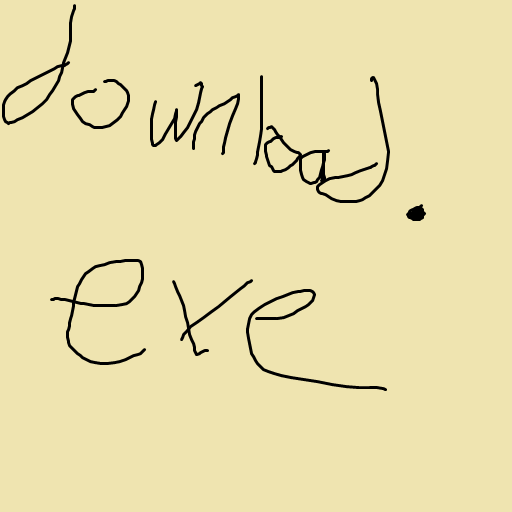 download.
exe